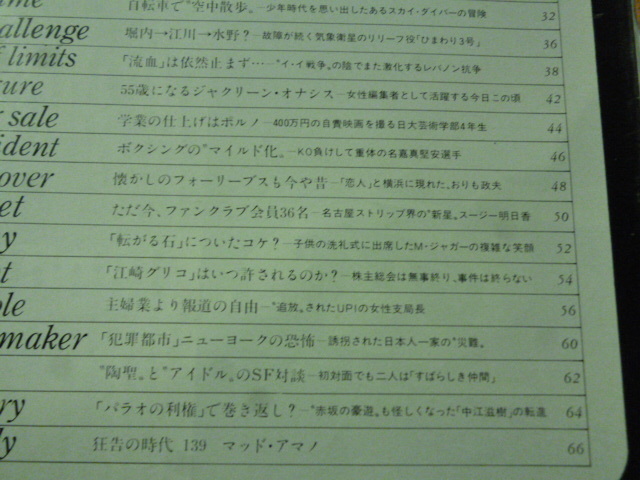 自転車で"空中散歩〟—少年時代を思い出したあるスカイ・ダイバーの冒険 32
allenge 堀内→江川→水野?—故障が続く気象衛星のリリーフ役「ひまわり3号」 36
limits 「流血」は依然止まず…—"イ・イ戦争〟の陰でまた激化するレバノン抗争 38
ure 55歳になるジャクリーン・オナシス—女性編集者として活躍する今日この頃 42
sale 学業の仕上げはポルノ—400万円の自費映画を撮る日大芸術学部4年生 44
ident ボクシングの"マイルド化〟—KO負けして重体の名嘉真堅安選手 46
over 懐かしのフォーリーブスも今や昔—「恋人」と横浜に現れた、おりも政夫 48
et ただ今、ファンクラブ会員36名—名古屋ストリップ界の"新星〟スージー明日香 50
y 「転がる石」についたコケ?—子供の洗礼式に出席したM・ジャガーの複雑な笑顔 52
t 「江崎グリコ」はいつ許されるのか?—株主総会は無事終り、事件は終らない 54
ple 主婦業より報道の自由—"追放〟されたUPIの女性支局長 56
maker 「犯罪都市」ニューヨークの恐怖—誘拐された日本人一家の"災難〟 60
"陶聖〟と"アイドル〟のSF対談—初対面でも二人は「すばらしき仲間」 62
ry 「パラオの利権」で巻き返し?—"赤坂の豪遊〟も怪しくなった「中江滋樹」の転進 64
ly 狂告の時代 139 マッド・アマノ 66